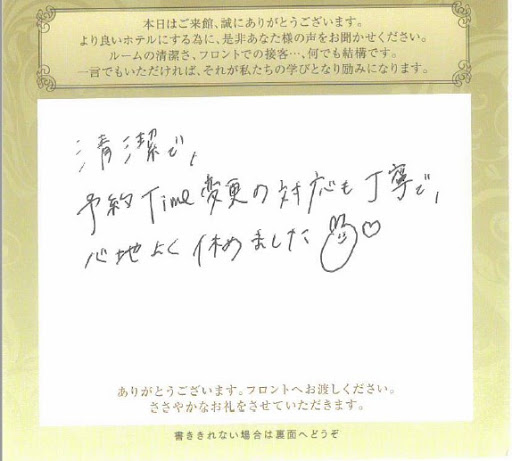 本日はご来館、誠にありがとうございます。
より良いホテルにする為に、是非あなた様の声をお聞かせください。
ルームの清潔さ、フロントでの接客…、何でも結構です。
一言でもいただければ、それが私たちの学びとなり励みになります。
清潔で、
予約Time変更の対応も丁寧で、
心地よく休めました♡
ありがとうございます。フロントへお渡しください。
ささやかなお礼をさせていただきます。
書ききれない場合は裏面へどうぞ